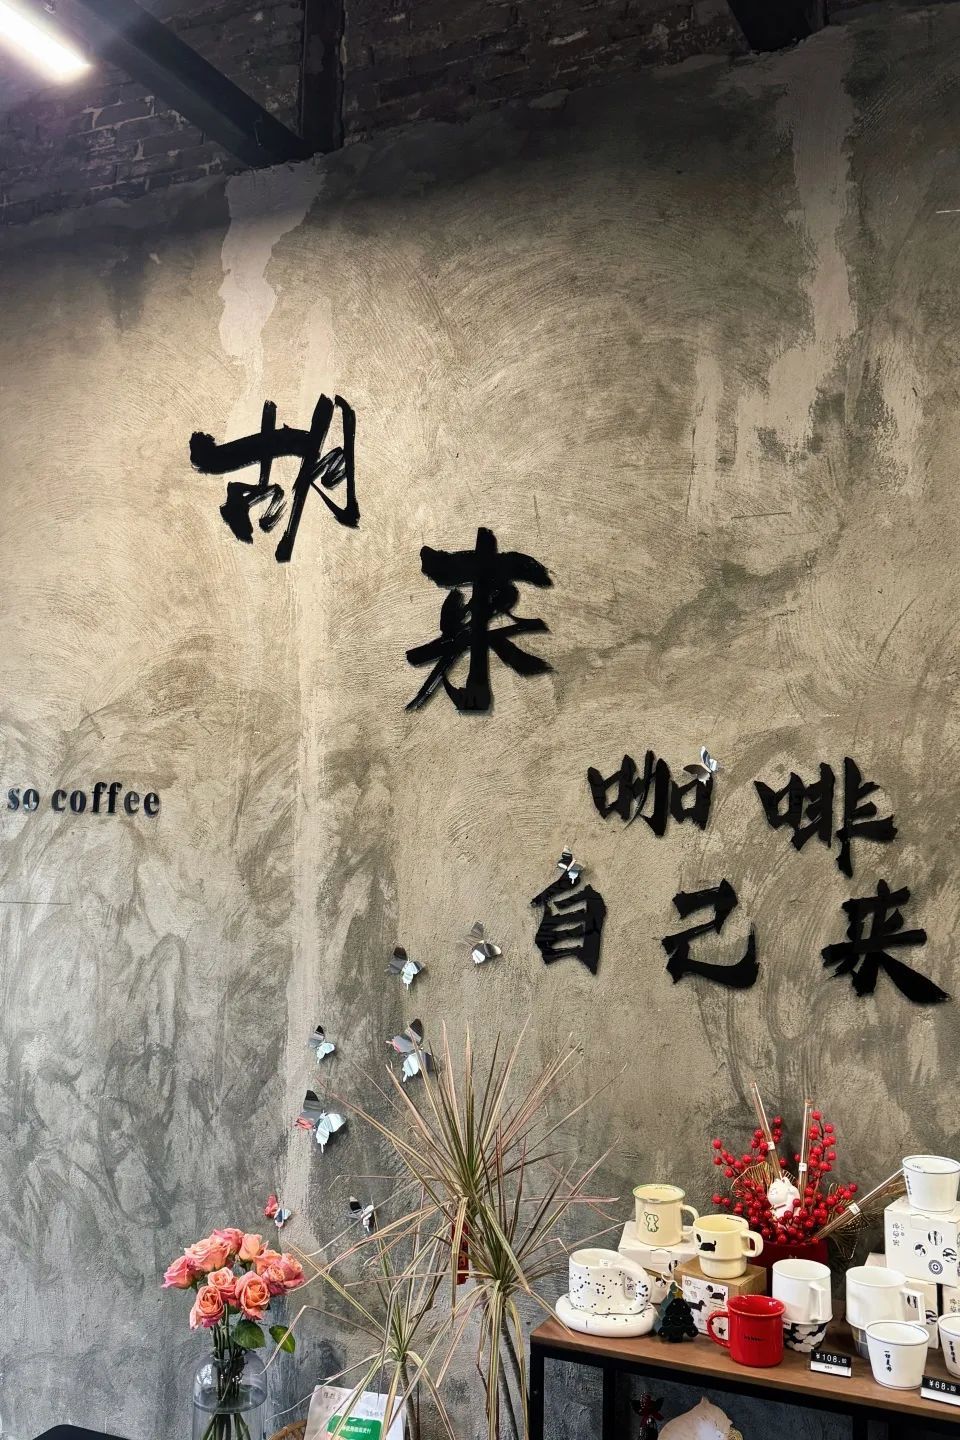 胡
来
咖啡
自己来
so coffee
¥108.00
¥68.00